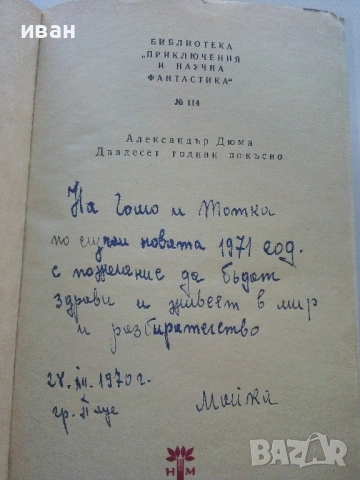 иван
БИБЛИОТЕКА
„ПРИКЛЮЧЕНИЯ
И НАУЧНА
ФАНТАСТИКА“
№ 114
Александър Дюма
Двадесет години по-късно
На Гошо и Тотка
по случай новата 1971 год.
с пожелание да бъдат
здрави и живеят в мир
и разбирателство
24.XII.1970 г.
гр.
Майка
НМ
Bazar.bg